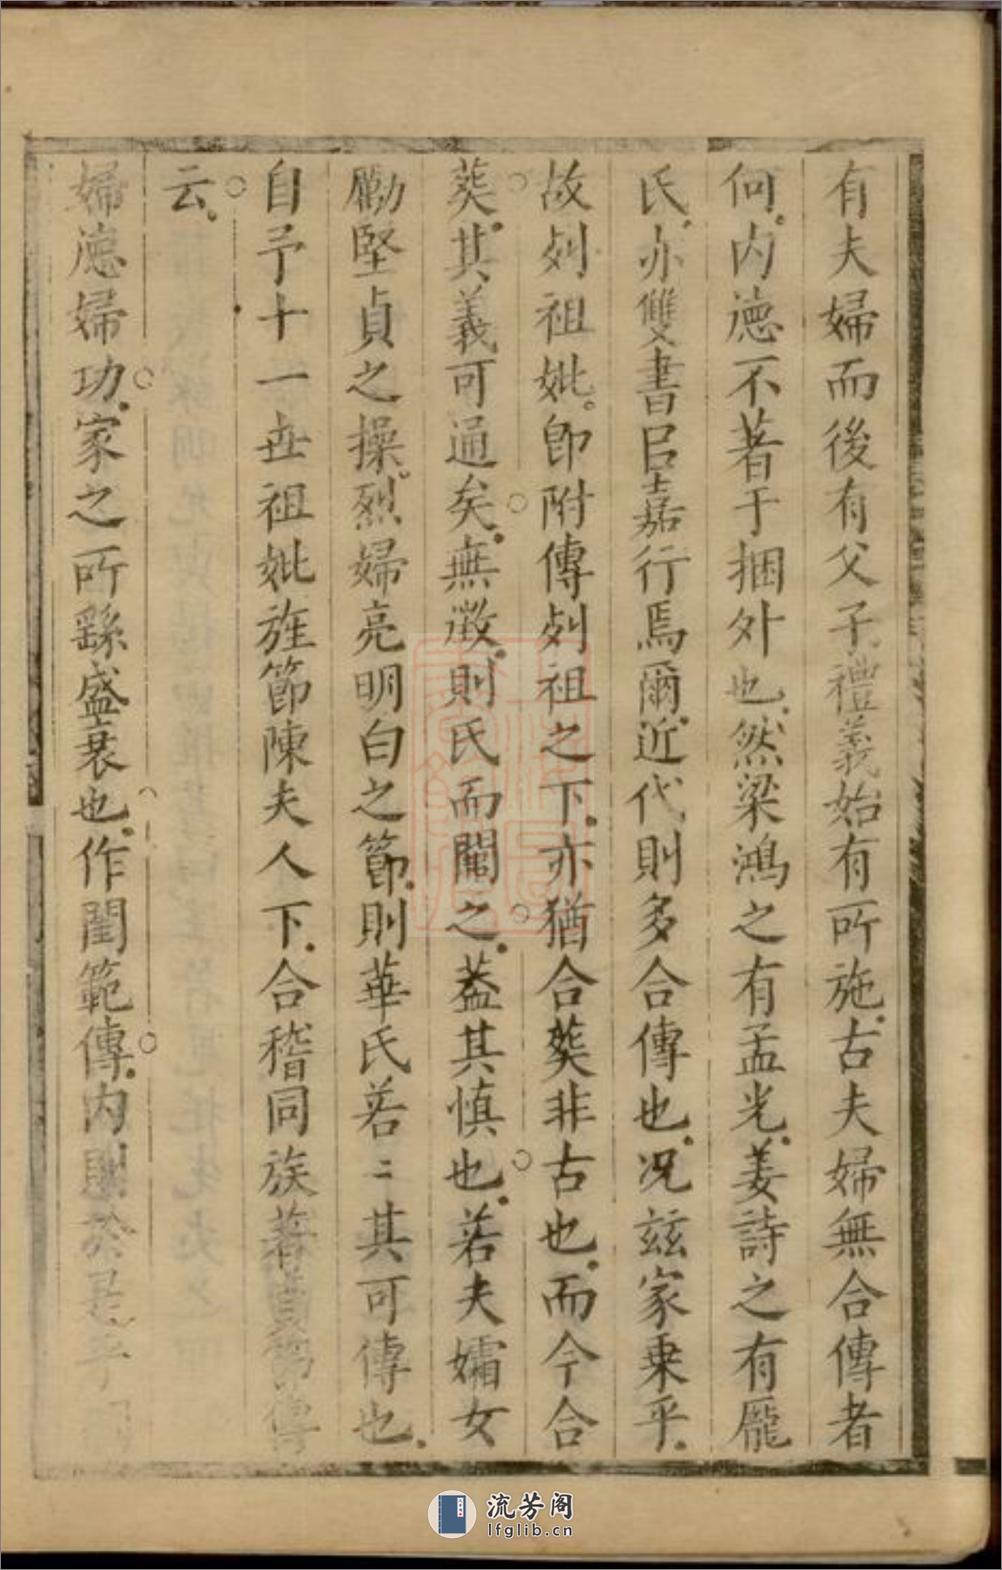 有夫婦而後有父子禮義始有所施古夫婦無合傳者
何內德不著于捆外也然梁鴻之有孟光姜詩之有龐
氏亦雙書㠯嘉行焉爾近代則多合傳也況玆家乗乎
故列祖妣卽附傳列祖之下亦猶合葬非古也而今合
葬其義可通矣無徵則氏而闕之葢其慎也若夫孀女
勵堅貞之操烈婦亮明白之節則華氏若〻其可傳也
自予十一世祖妣旌節陳夫人下合稽同族著貞節傳
云
婦德婦功家之所繇盛衰也作閨範傳內則於是乎
流芳阁
lfglib.cn